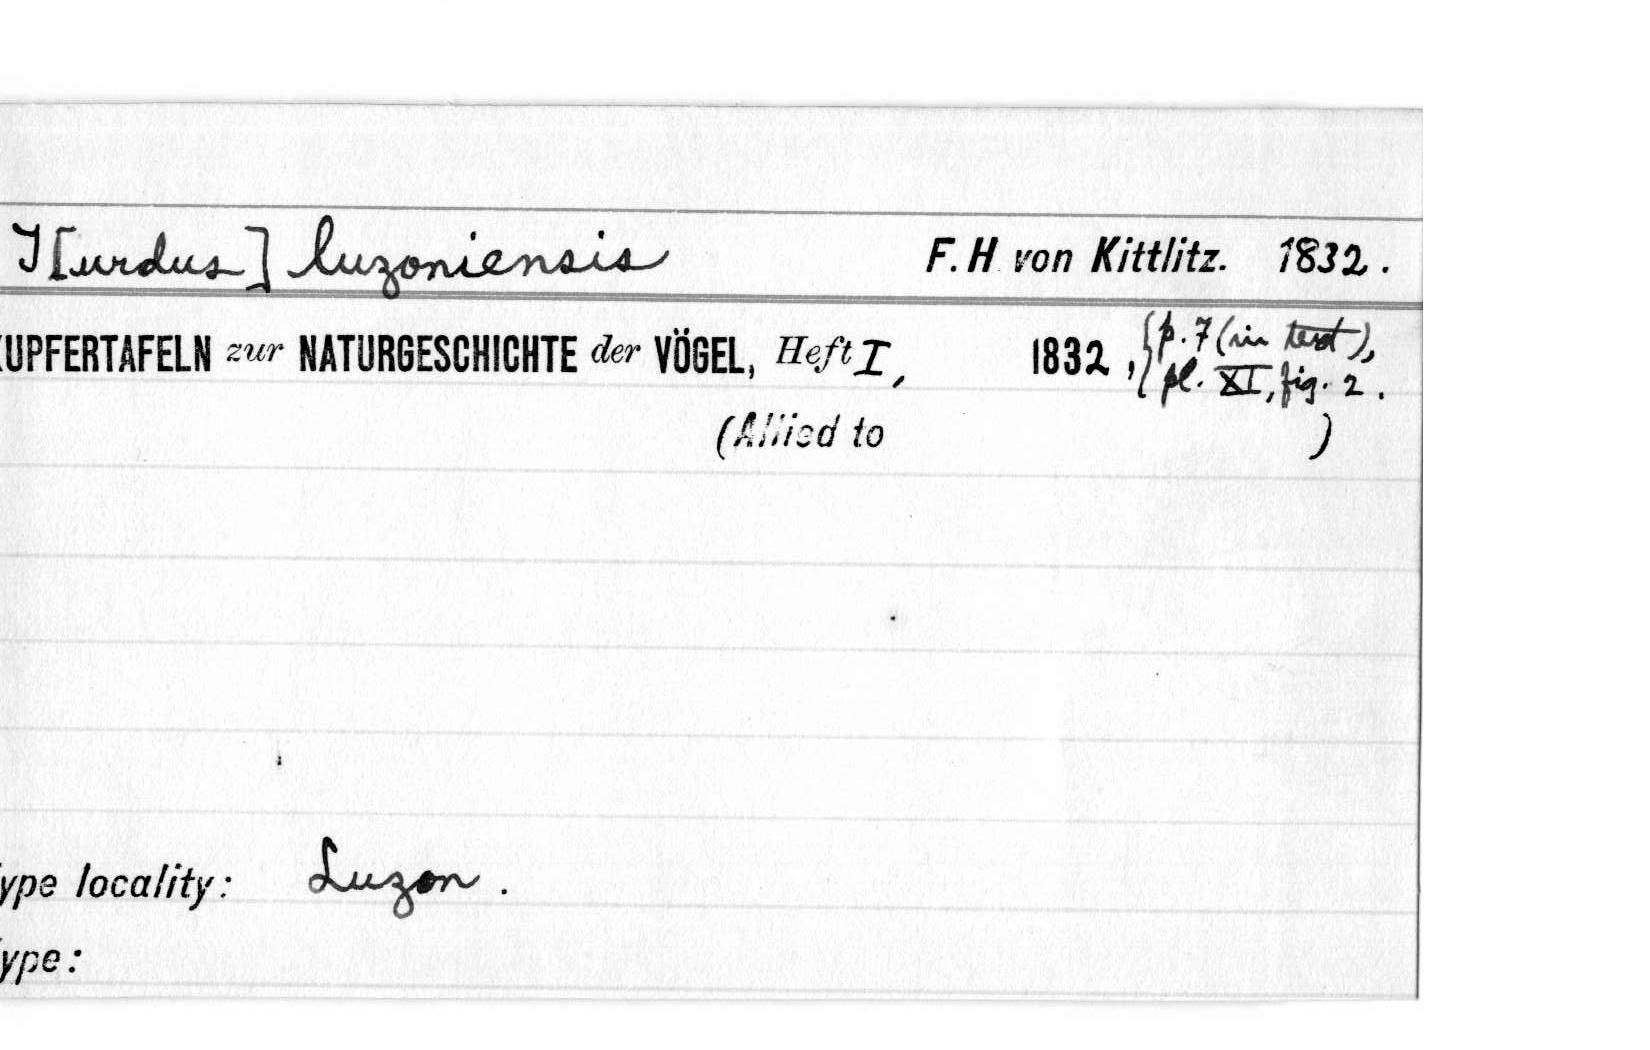 T[urdus] luzoniensis F. H. von Kittlitz. 1832.
KUPFERTAFELN zur NATURGESCHICHTE der VÖGEL, Heft I, 1832, {p. 7 (in text),
pl. XI, fig. 2.
(Allied to )
ype locality: Luzon.
ype: